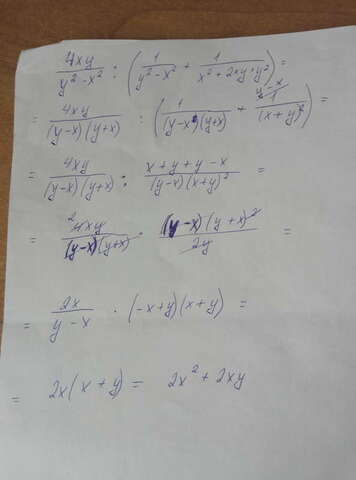 4xy/(y²-x²) : (1/(y²-x²) + 1/(x²+2xy+y²)) =
= 4xy/((y-x)(y+x)) : (1/((y-x)(y+x)) + 1/(x+y)²) = y-x
= 4xy/((y-x)(y+x)) : (x+y+y-x)/((y-x)(x+y)²) =
= 2 4xy/((y-x)(y+x)) · ((y-x)(y+x)²)/2y =
= 2x/(y-x) · (-x+y)(x+y) =
= 2x(x+y) = 2x²+2xy